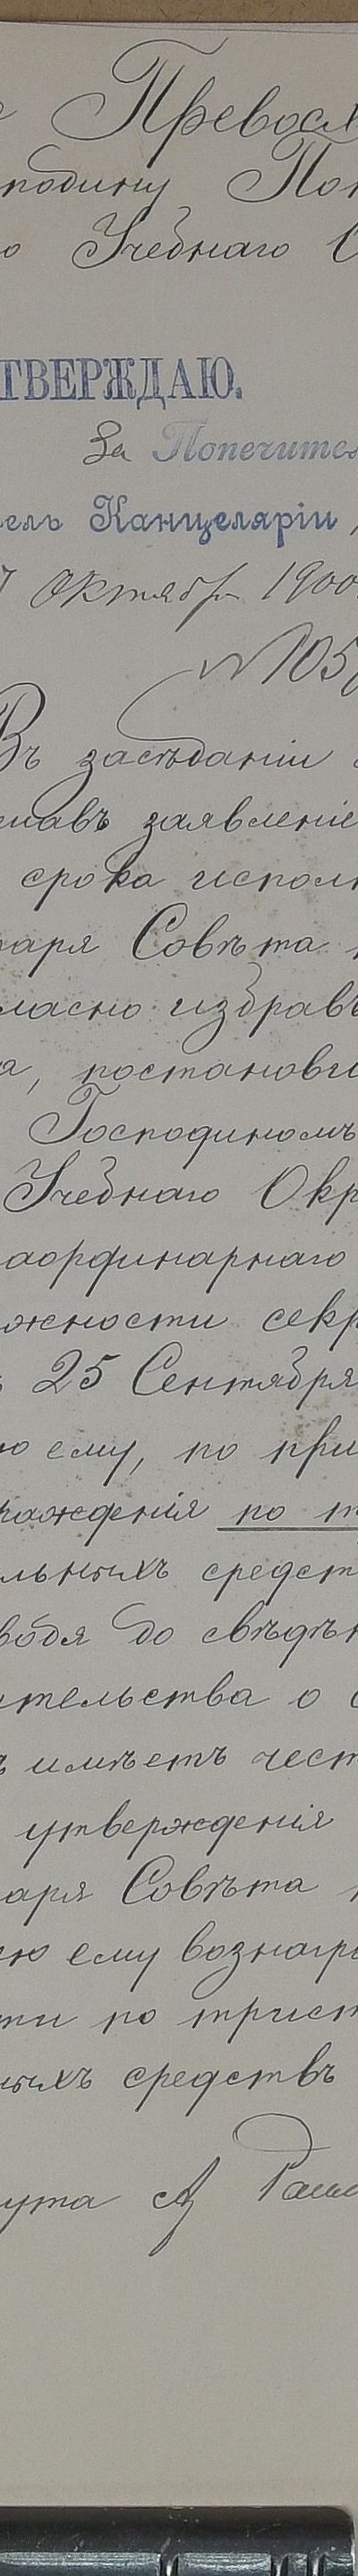 Превосх
подину Поп
о Учебнаго О
ТВЕРЖДАЮ.
За Попечител
ель Канцеляріи
7 Октября 1900
№ 105
Въ засѣданіи
шавъ заявленіе
срока исполн
таря Совѣта
гласно избравъ
а, постанови
Господиномъ
Учебнаго Окр
аординарнаго
жности секр
25 Сентября
ю ему, по при
раждения по т
льныхъ средст
водя до свѣдѣн
ательства о
ъ имѣетъ чест
утвержденія
таря Совѣта
ію ему вознагра
ти по трист
ныхъ средствъ
ута А Раш